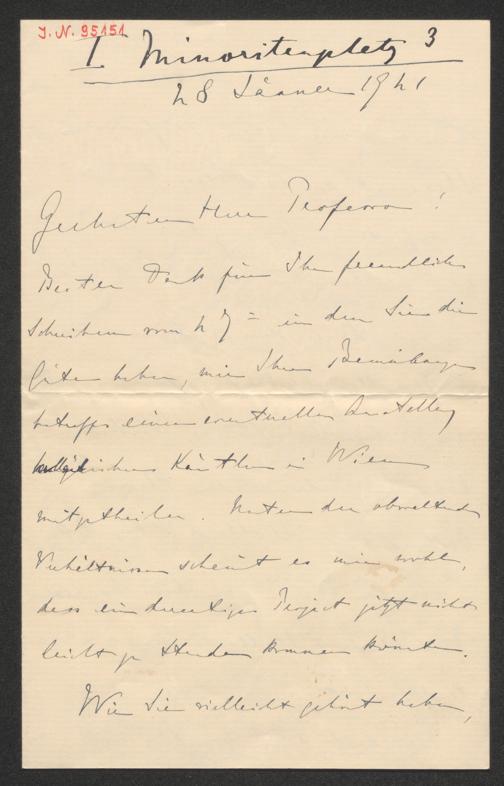 J. N. 95151
I. Minoritenplatz 3
28 Jänner 1921
Geehrter Herr Professor!
Besten Dank für Ihr freundliches
Schreiben vom 27 = in dem Sie die
Güte haben, mir Ihre Bemühungen
betreffs einer eventuellen Ausstellung
Künstler in Wien
mitzutheilen. Unter den obwaltenden
Verhältnissen scheint es mir wohl,
dass ein derartiges Project jetzt nicht
leicht zu Stande kommen könnte.
Wie Sie vielleicht gehört haben,